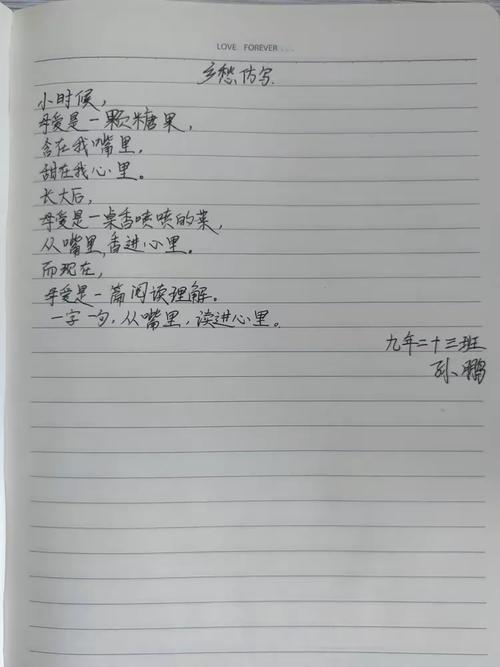 LOVE FOREVER...
乡愁仿写
小时候，
母爱是一颗糖果，
含在我嘴里，
甜在我心里。
长大后，
母爱是一桌香喷喷的菜，
从嘴里，香进心里。
而现在，
母爱是一篇阅读理解。
一字一句，从嘴里，读进心里。
九年二十三班
孙鹏